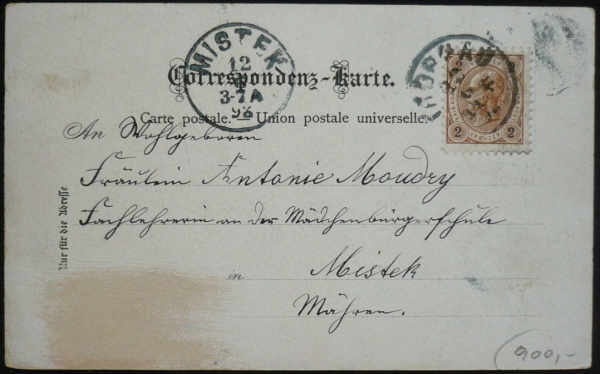 MISTEK
12
3-7A
98
TROPPAU
Correspondenz-Karte.
Carte postale. — Union postale universelle.
2 2
An Wohlgeboren
Fräulein Antonie Moudry
Fachlehrerin an der Mädchenbürgerschule
in Mistek
Mähren.
Nur für die Adresse
900,-